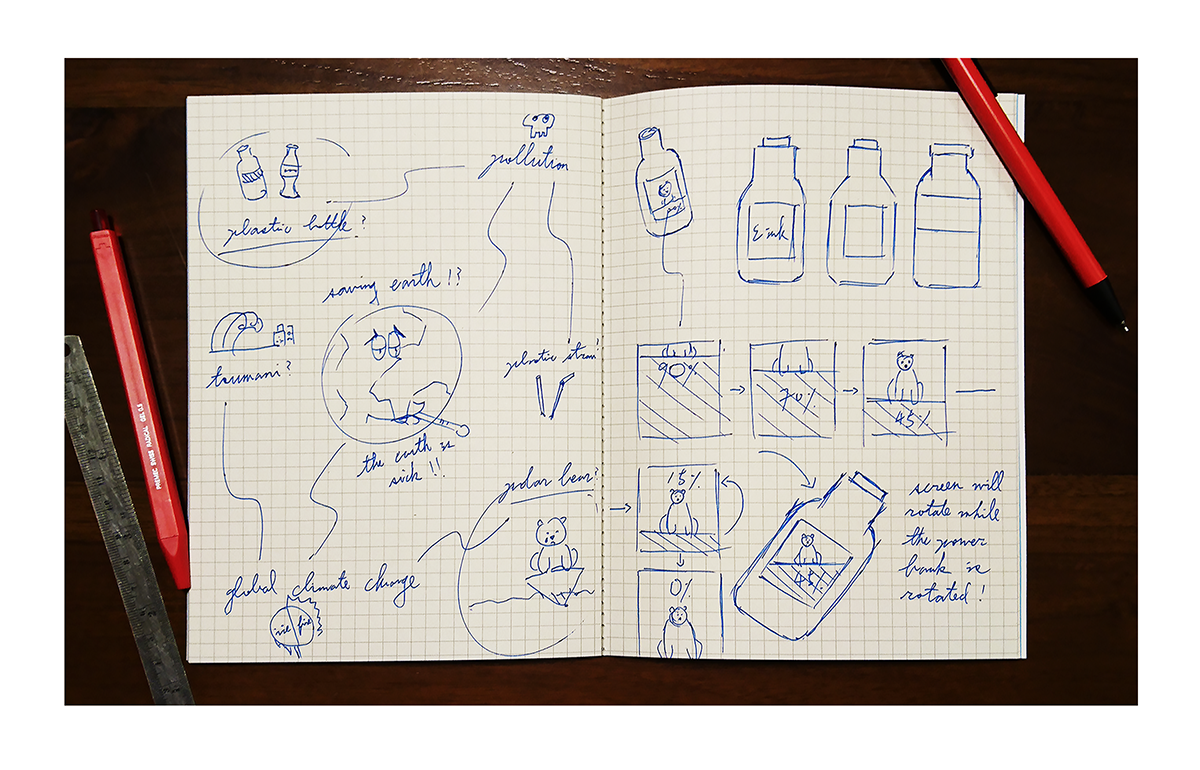 pollution
plastic bottle?
saving earth!?
tsumani?
plastic straw?
the earth is
sick!!
polar bear?
global climate change
ice fire
E-ink
90%
70%
45%
15%
0%
45%
screen will
rotate while
the power
bank is
rotated!
PREMEC SWISS RADICAL GEL 0.5